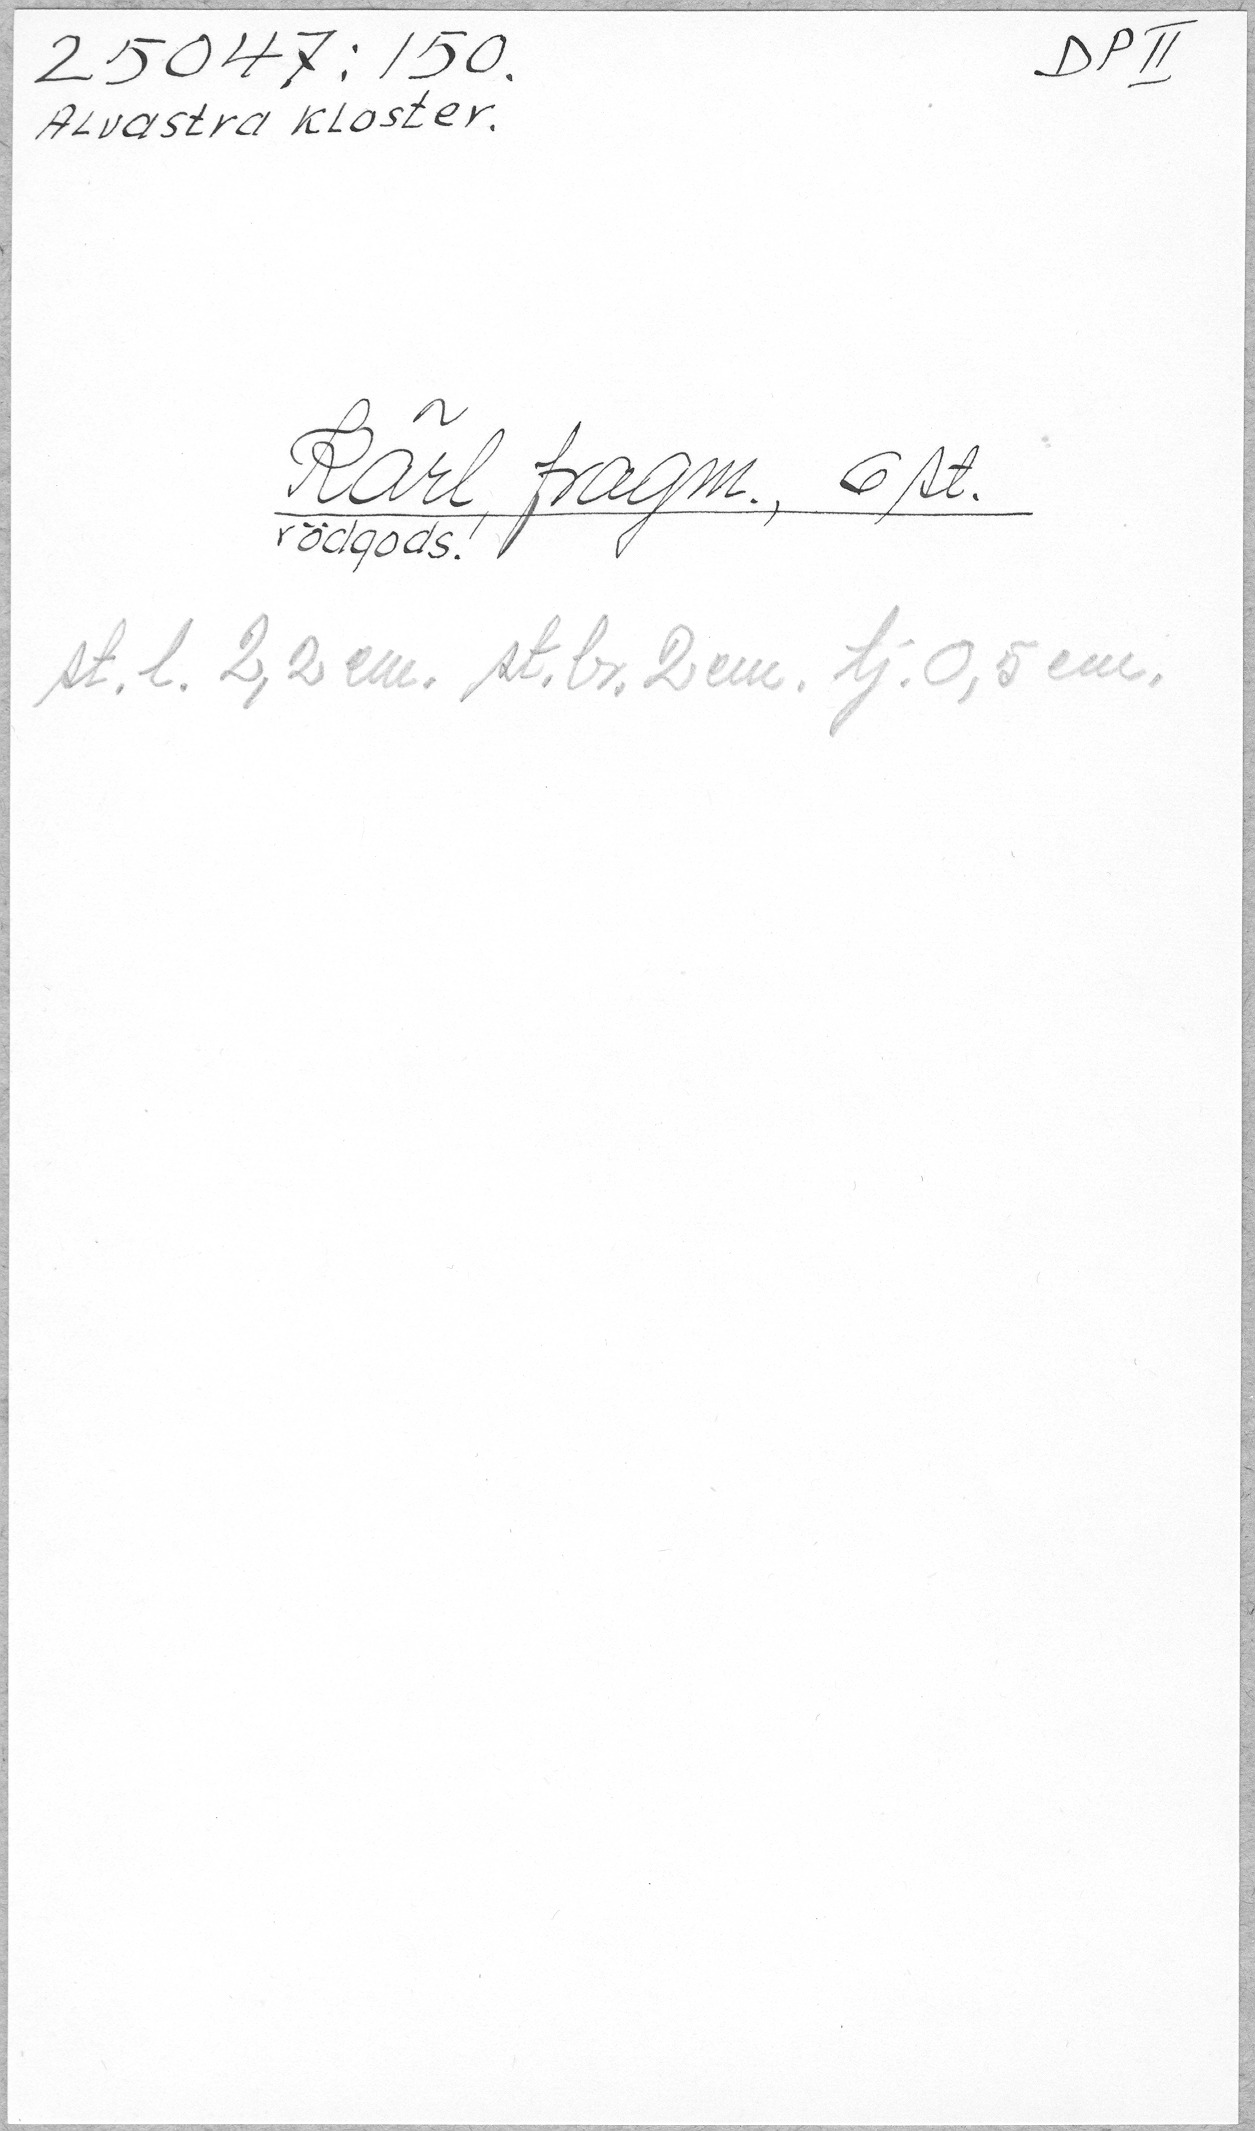 25047:150.
DP II
Alvastra kloster.
Kärl, fragm., 6 st.
rödgods.
st. l. 2,2 cm. st. br. 2 cm. tj. 0,5 cm.